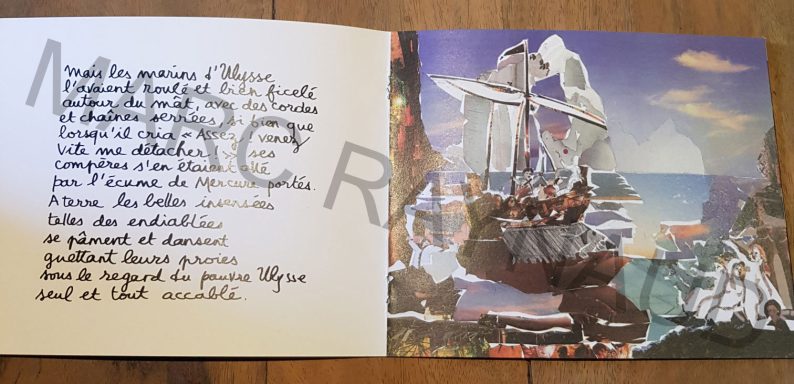 mais les marins d'Ulysse
l'avaient roulé et bien ficelé
autour du mât, avec des cordes
et chaînes serrées, si bien que
lorsqu'il cria « Assez ! venez
vite me détacher ! » ses
compères s'en étaient allé
par l'écume de Mercure portés.
A terre les belles insensées
telles des endiablées
se pâment et dansent
guettant leurs proies
sous le regard du pauvre Ulysse
seul et tout accablé.
MARC